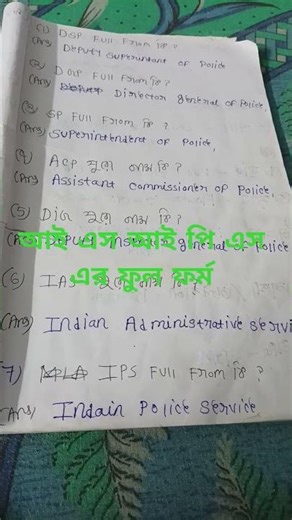 (1) DSP Full From কি ?
(Ans) DEPUTY Superintendant of Police
(2) DGP Full From কি ?
(Ans) Director general of Police
(3) SP Full From কি ?
(Ans) Superintendent of Police,
(4) ACP পুরো নাম কি ?
(Ans) Assistant commissioner of Police,
(5) DIG পুরো নাম কি ?
আই এস আই পি এস
(Ans) DEPUTY general of Police
এর ফুল ফর্ম
(6) IAS পুরো নাম কি ?
(Ans) Indian Administrative servi
(7) IPS Full From কি ?
(Ans) Indain Police service